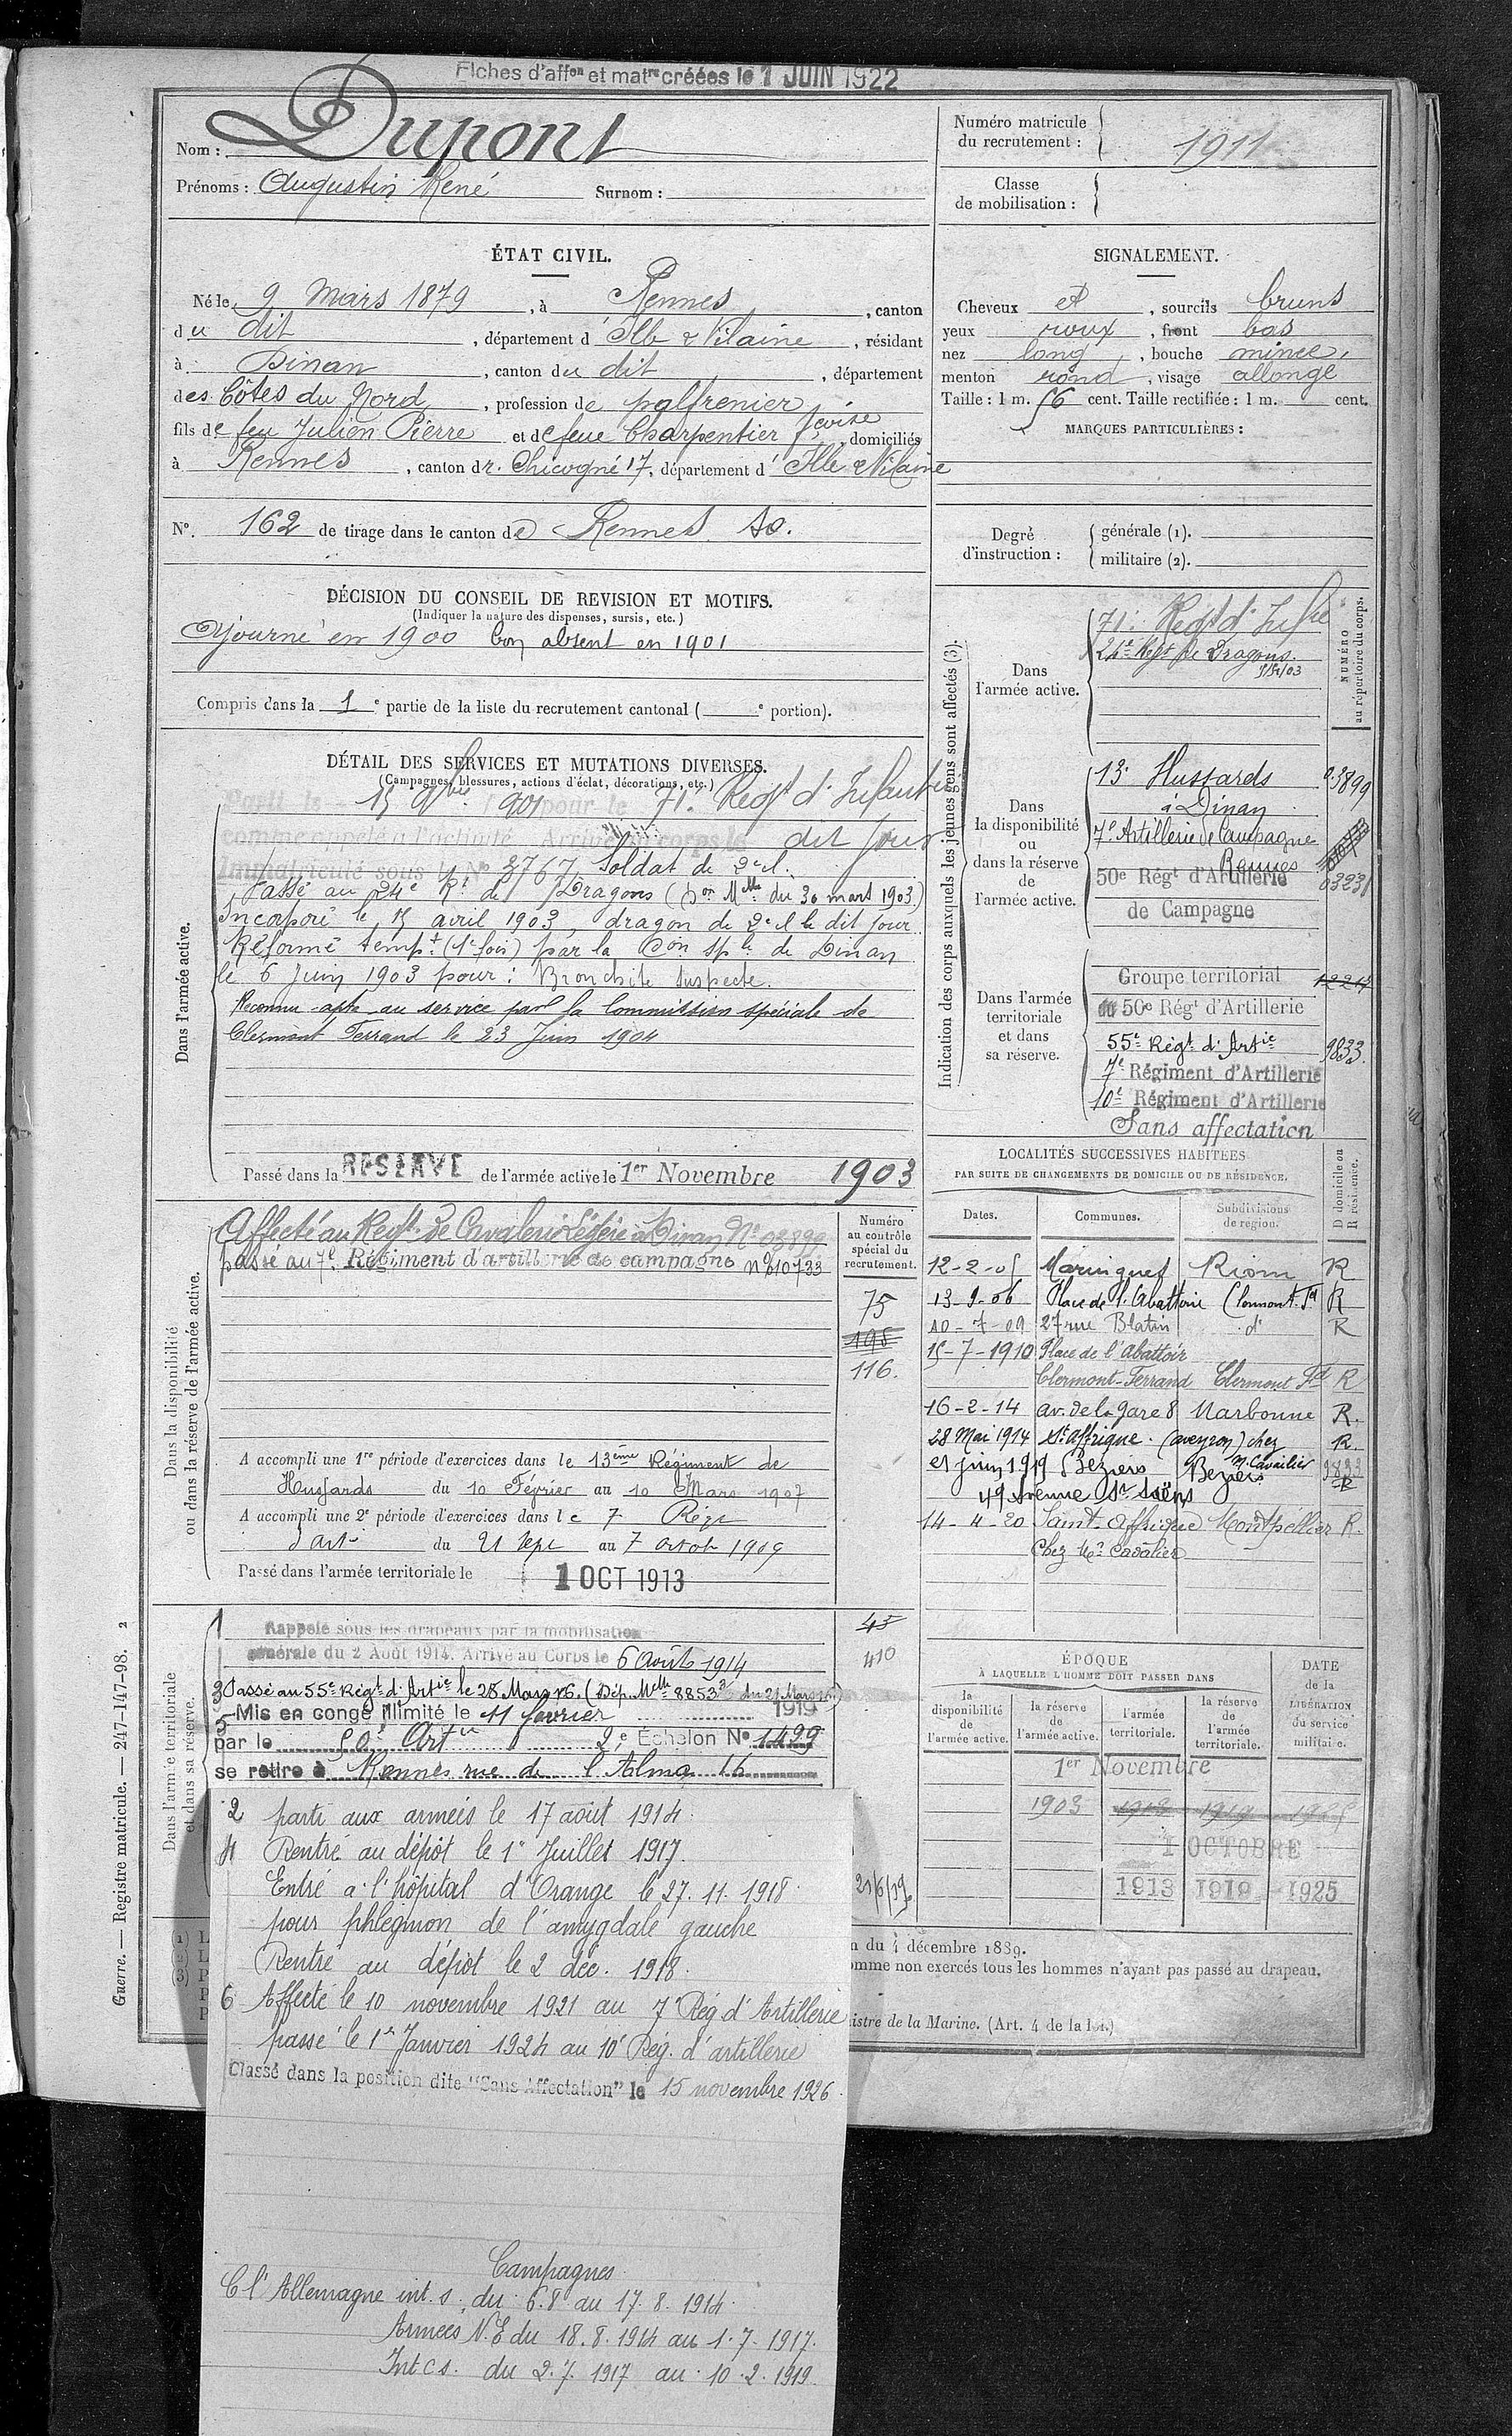 Fiches d'affon et matre créées le 1 JUIN 1922
Nom : Dupont
Prénoms : Augustin René Surnom :
Numéro matricule du recrutement : 1911
Classe de mobilisation :
ÉTAT CIVIL.
Né le 9 Mars 1879, à Rennes, canton
du dit, département d'Ille & Vilaine, résidant
à Dinan, canton du dit, département
des Côtes du Nord, profession de palfrenier
fils de feu Julien Pierre et de feue Charpentier, domiciliés
à Rennes, canton d r. Chicogné 17, département d'Ille & Vilaine
N°. 162 de tirage dans le canton de Rennes So.
SIGNALEMENT.
Cheveux et, sourcils bruns
yeux roux, front bas
nez long, bouche mince,
menton rond, visage allongé
Taille : 1 m. 56 cent. Taille rectifiée : 1 m. cent.
MARQUES PARTICULIÈRES :
Degré d'instruction : générale (1).
militaire (2).
DÉCISION DU CONSEIL DE REVISION ET MOTIFS.
(Indiquer la nature des dispenses, sursis, etc.)
Ajourné en 1900 bon absent en 1901
Compris dans la 1e partie de la liste du recrutement cantonal ( e portion).
DÉTAIL DES SERVICES ET MUTATIONS DIVERSES.
(Campagnes, blessures, actions d'éclat, décorations, etc.)
Dans l'armée active.
Parti le 15 9bre 1901 pour le 71e Regt d'Infanterie
comme appelé à l'activité. Arrivé au corps le dit jour
Immatriculé sous le N° 3767 Soldat de 2e cl.
Passé au 24e Rt de Dragons (Don Mlle du 30 mars 1903)
Incorporé le 15 avril 1903, dragon de 2e cl le dit jour.
Réformé tempt (1e fois) par la Con Sple de Dinan
le 6 Juin 1903 pour : Bronchite suspecte.
Reconnu apte au service par la Commission spéciale de
Clermont Ferrand le 23 Juin 1904
Passé dans la RÉSERVE de l'armée active le 1er Novembre 1903
Indication des corps auxquels les jeunes gens sont affectés (3).
NUMÉRO au répertoire du corps.
Dans l'armée active.
71e Regt d'Infrie
24e Regt de Dragons
Dans la disponibilité ou dans la réserve de l'armée active.
13e Hussards 03899
à Dinan
7e Artillerie de Campagne
Rennes
50e Régt d'Artillerie 03231
de Campagne
Dans l'armée territoriale et dans sa réserve.
Groupe territorial
du 50e Régt d'Artillerie
55e Régt d'Artie 9833
7e Régiment d'Artillerie
10e Régiment d'Artillerie
Sans affectation
LOCALITÉS SUCCESSIVES HABITÉES
PAR SUITE DE CHANGEMENTS DE DOMICILE OU DE RÉSIDENCE.
Dates. Communes. Subdivisions de région. D domicile ou R résidence.
12-2-05 Maringues Riom R
13-9-06 Place de l'Abattoir Clermont-Fd R
10-7-09 27 rue Blatin d° R
15-7-1910 Place de l'Abattoir
Clermont-Ferrand Clermont Fd R
16-2-14 av. de la gare 8 Narbonne R.
28 Mai 1914 St Affrique (Aveyron) chez M. Cavailier R
21 juin 1919 Béziers Béziers R
49 Avenue St Saëns
14-4-20 Saint-Affrique Montpellier R.
Chez Mr Cavalier
Dans la disponibilité ou dans la réserve de l'armée active.
Affecté au Regt de Cavalerie légère à Dinan N° 03899
passé au 7e Régiment d'artillerie de campagne
Numéro au contrôle spécial du recrutement.
75
198
116.
A accompli une 1re période d'exercices dans le 13ème Régiment de
Hussards du 10 Février au 10 Mars 1907
A accompli une 2e période d'exercices dans le 7 Régt
d'arti du 21 Sept au 7 octob 1909
Passé dans l'armée territoriale le 1 OCT 1913
Dans l'armée territoriale et dans sa réserve.
1 Rappelé sous les drapeaux par la mobilisation
générale du 2 Août 1914. Arrivé au Corps le 6 Août 1914
3 Passé au 55e Régt d'Artie le 28 Mars 16. (Dép. Melle 8853
5 Mis en congé illimité le 11 février 1919
par le 50e Artie 2e Échelon N° 1499
se retire à Rennes rue de l'Alma 16
45
410
2 parti aux armées le 17 août 1914
4 Rentré au dépôt le 1er Juillet 1917.
Entré à l'hôpital d'Orange le 27.11.1918
pour phlegmon de l'amygdale gauche
Rentré au dépôt le 2 déc. 1918.
6 Affecté le 10 novembre 1921 au 7e Rég d'Artillerie
passé le 1er Janvier 1924 au 10e Rég. d'artillerie
Classé dans la position dite "Sans Affectation" le 15 novembre 1926.
Campagnes
C l'Allemagne int. s. du 6.8 au 17.8.1914
Armées N.E du 18.8.1914 au 1.7.1917.
Int C s. du 2.7.1917 au 10.2.1919.
ÉPOQUE
À LAQUELLE L'HOMME DOIT PASSER DANS
la disponibilité de l'armée active.
la réserve de l'armée active.
l'armée territoriale.
la réserve de l'armée territoriale.
DATE de la LIBÉRATION du service militaire.
1er Novembre
1903 1913 1919
1 OCTOBRE
1913 1919 1925
n du 4 décembre 1889.
omme non exercés tous les hommes n'ayant pas passé au drapeau.
istre de la Marine. (Art. 4 de la loi.)
Guerre. — Registre matricule. — 247-147-98. 2